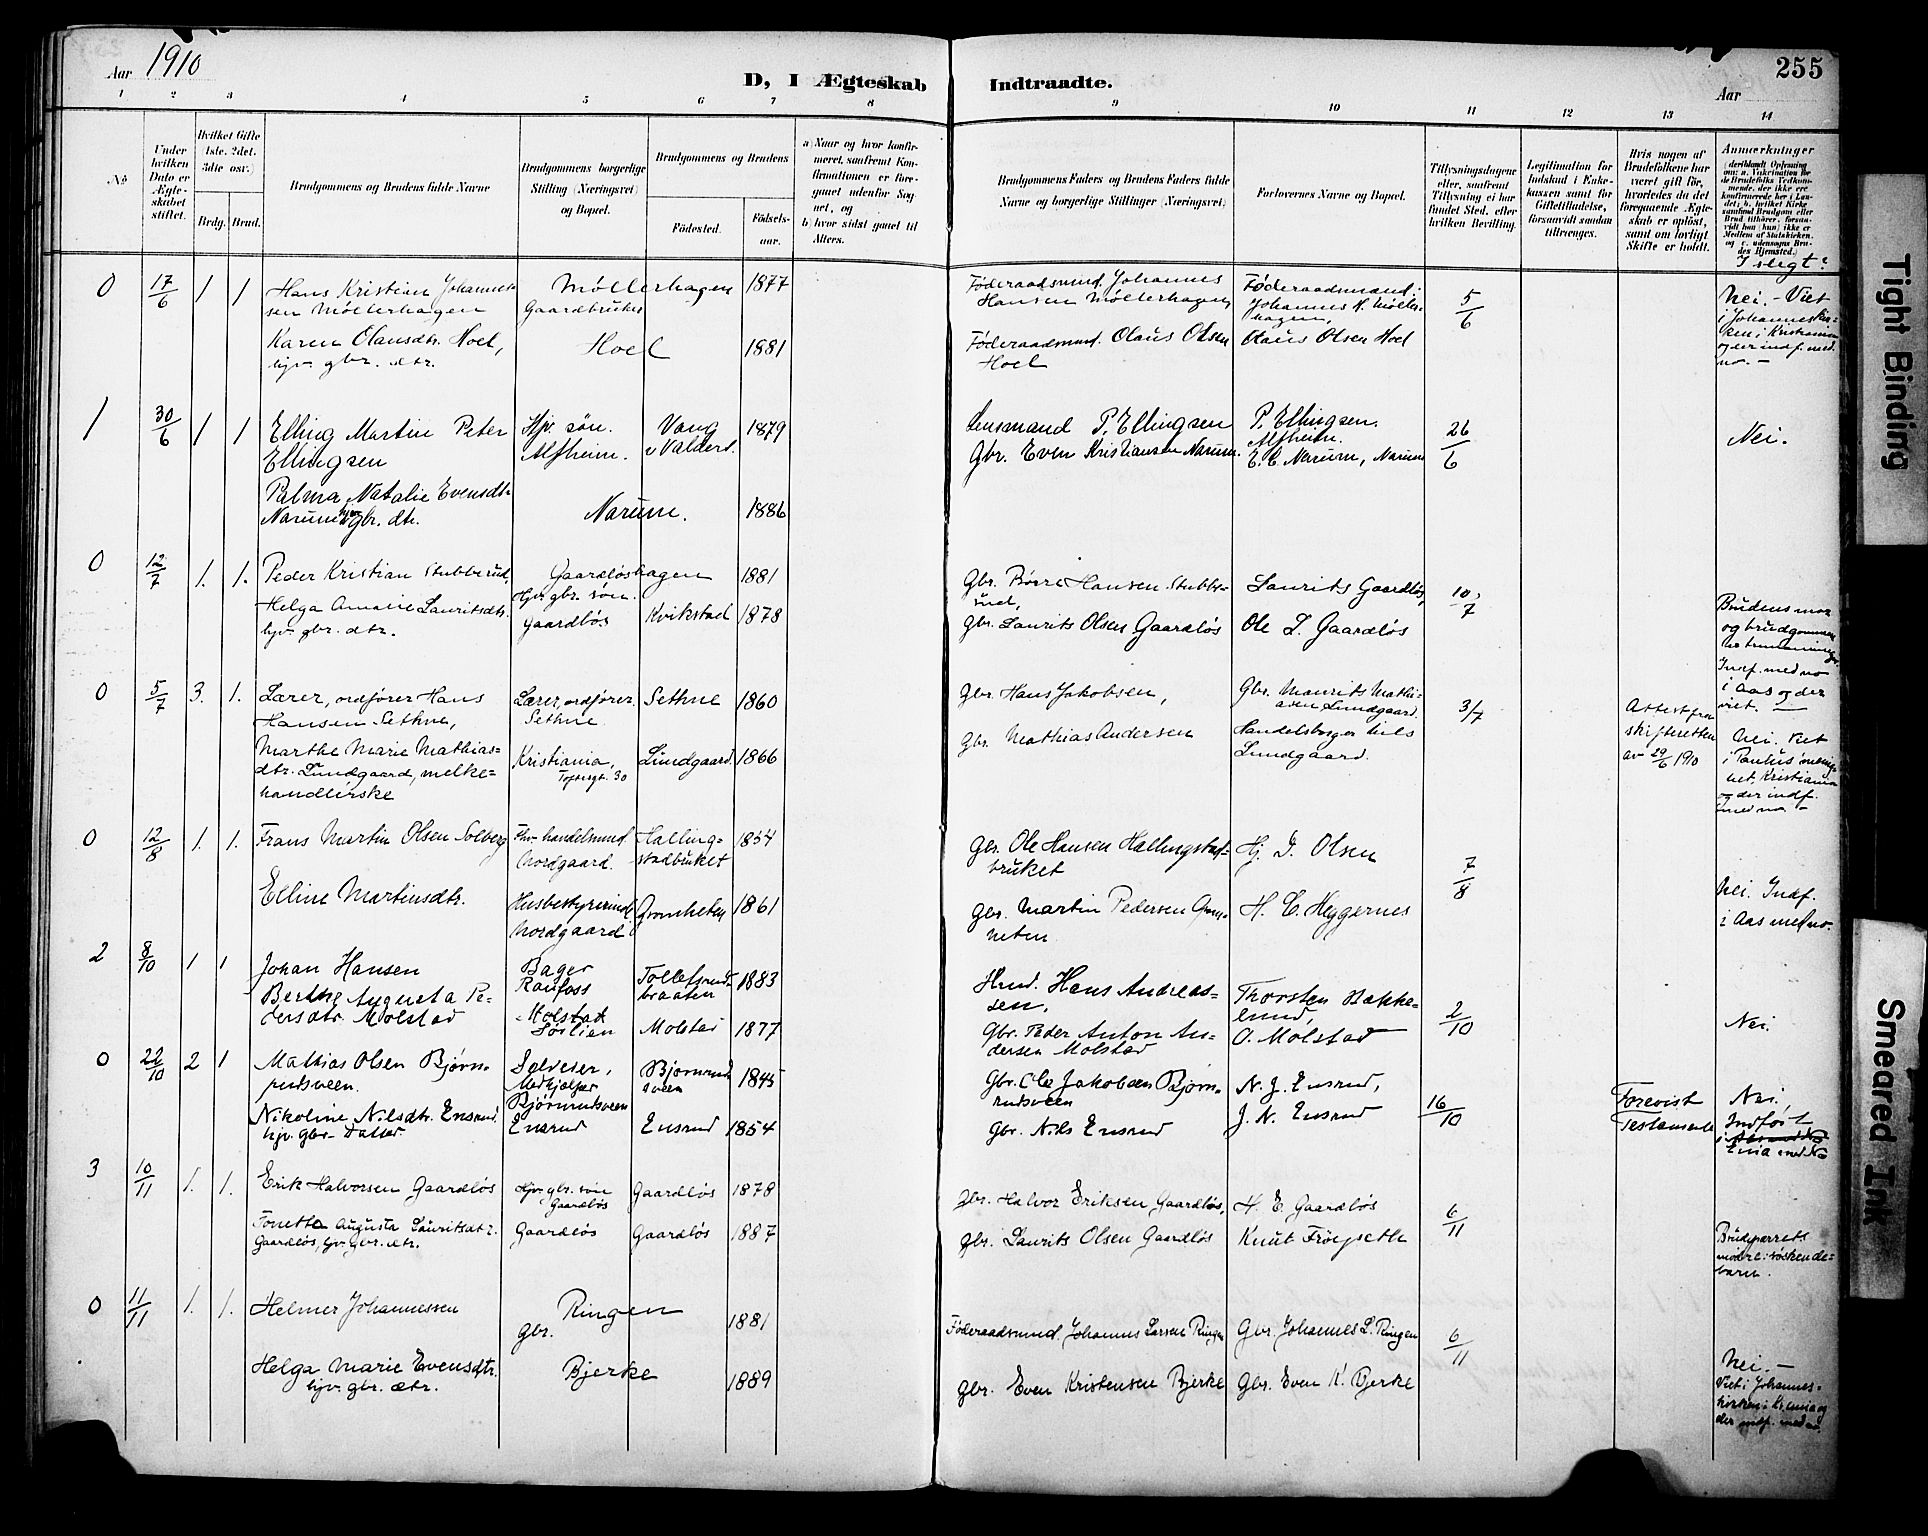 Aar 1910
D, I Ægteskab Indtraadte.
255
Aar
1 2 3 4 5 6 7 8 9 10 11 12 13 14
No
Under hvilken Dato er Ægteskabet stiftet.
Hvilket Gifte (1ste. 2det. 3die osv.)
Brdg. Brud.
Brudgommens og Brudens fulde Navne
Brudgommens borgerlige Stilling (Næringsvei) og Bopæl.
Brudgommens og Brudens
Födested.
Födselsaar.
a) Naar og hvor konfirmeret, saafremt Konfirmationen er foregaaet udenfor Sognet, og
b) hvor sidst gaaet til Alters.
Brudgommens Faders og Brudens Faders fulde Navne og borgerlige Stillinger (Næringsvei)
Forlovernes Navne og Bopæl.
Tillysningsdagene eller, saafremt Tillysning ei har fundet Sted, efter hvilken Bevilling.
Legitimation for Indskud i Enkekassen samt for Giftetilladelse, forsaavidt saadan tiltrænges.
Hvis nogen af Brudefolkene har været gift för, hvorledes da det foregaaende Ægteskab er oplöst, samt om lovligt Skifte er holdt.
Anmærkninger
I slegt?
0 17/6 1 1 Hans Kristian Johannessen Møllerhagen
Gaardbruker
Møllerhagen 1877
Føderaadsmd. Johannes Hansen Møllerhagen
Føderaadsmand: Johannes H. Møllerhagen,
5/6
Nei. - Viet i Johanneskirken i Kristiania og der indf. med no. -
Karen Olausdtr. Hoel, hjv. gbr. dtr.
Hoel 1881
Føderaadsmd. Olaus Olsen Hoel
Olaus Olsen Hoel
1 30/6 1 1 Elling Martin Peter Ellingsen
Hjv. søn. Alfheim.
Vang v Valders. 1879
Lensmand P. Ellingsen
P. Ellingsen. Alfheim.
26/6
Nei.
Gbr. Even Kristiansen Narum.
E. C. Narum, Narum
Palma Natalie Evensdtr. Narum hjv. gbr. dtr.
Narum. 1886
0 12/7 1. 1. Peder Kristian Stubberud,
Gaardløshagen 1881
Hjv. gbr. søn.
Gbr. Børre Hansen Stubberud,
Laurits Gaardløs,
10/7
Helga Amalie Lauritsdtr. hjv. gbr. dtr.
Gaardløs Kvikstad 1878
gbr. Laurits Olsen Gaardløs
Ole L. Gaardløs
Brudens mor og brudgommen
Indf. med no i Aas og der viet. -
0 5/7 3. 1. Lærer, ordfører Hans Hansen Sethne,
Lærer, ordfører. Sethne
Sethne 1860
gbr. Hans Jakobsen,
Gbr. Maurits Mathisen Lundgaard.
3/7
Attest fra skifteretten av 29/6 1910
Marthe Marie Mathiasdtr. Lundgaard, melkehandlerske
Kristiania, Toftesgt. 30
Lundgaard. 1866
gbr. Mathias Andersen
Handelsborger Nils Lundgaard.
Nei. Viet i Paulus menighet, Kristiania og der indf. med no -
0 12/8 1. 1. Frans Martin Olsen Solberg
Fhv. handelsmd. Nordgaard.
Hallingstadbruket 1854
gbr. Ole Hansen Hallingstadbruket
Hj. D. Olsen
7/8
Elline Martinsdtr.
Husbestyrerinde Nordgaard
Gromheten 1861
gbr. Martin Pedersen Gromheten
H. C. Heggernes
Nei. Indf. i Aas med no.
2 8/10 1 1 Johan Hansen
Bager Raufoss
Tollefsrudbraaten 1883
Hmd. Hans Andreassen,
Thorsten Bakkelund,
2/10
Nei.
Berthe Augusta Pedersdtr. Molstad
Molstad Sørlien
Molstad 1877
gbr. Peder Anton Andersen Molstad
O. Molstad
0 22/10 2 1 Mathias Olsen Bjørnrudsveen.
Selveier, Medhjælper Bjørnrudsveen
Bjørnrudsveen 1845
Gbr. Ole Jakobsen Bjørnrudsveen
N. J. Ensrud,
16/10
Forevist Testamente
Nei. Indført i Eina med No
Nikoline Nilsdtr. Ensrud, hjv. gbr. Datter
Ensrud Ensrud 1854
Gbr. Nils Ensrud
J. N. Ensrud
3 10/11 1. 1. Erik Halvorsen Gaardløs
Hjv. gbr. søn Gaardløs
Gaardløs 1878
gbr. Halvor Eriksen Gaardløs,
H. E. Gaardløs
6/11
Tonette Augusta Lauritsdtr. Gaardløs, hjv. gbr. dtr.
Gaardløs Gaardløs 1887
gbr. Laurits Olsen Gaardløs
Knut Frøysette
Brudparrets mødre: søskendebarn.
0 11/11 1. 1. Helmer Johannessen
Gbr.
Ringen 1881
Føderaadsmd. Johannes Larsen Ringen
Gbr. Johannes L. Ringen
6/11
Helga Marie Evensdtr. hjv. gbr. dtr.
Bjerke 1889
gbr. Even Kristensen Bjerke
Gbr. Even K. Bjerke
Nei. - Viet i Johanneskirken i Kr.ania og der indf. med no.
Tight Binding
Smeared Ink